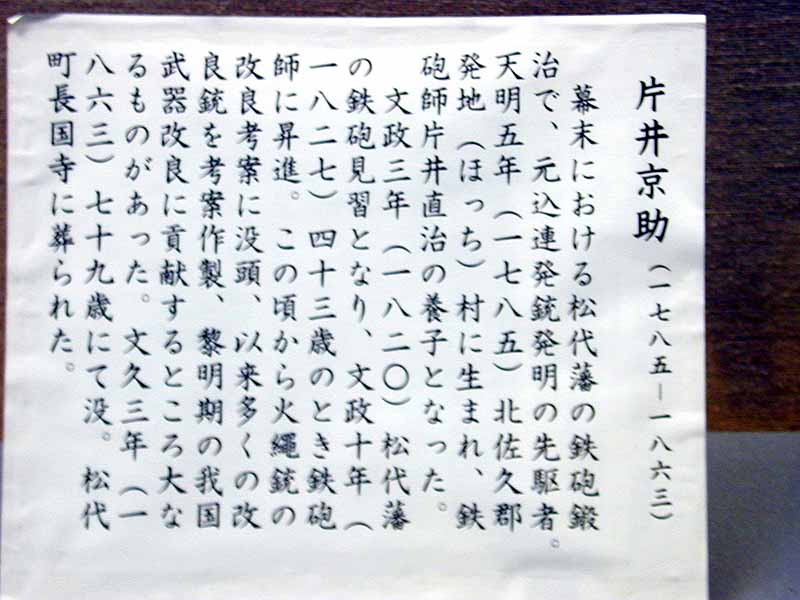 片井京助（一七八五－一八六三）
幕末における松代藩の鉄砲鍛
治で、元込連発銃発明の先駆者。
天明五年（一七八五）北佐久郡
発地（ほっち）村に生まれ、鉄
砲師片井直治の養子となった。
文政三年（一八二〇）松代藩
の鉄砲見習となり、文政十年（
一八二七）四十三歳のとき鉄砲
師に昇進。この頃から火縄銃の
改良考案に没頭、以来多くの改
良銃を考案作製、黎明期の我国
武器改良に貢献するところ大な
るものがあった。文久三年（一
八六三）七十九歳にて没。松代
町長国寺に葬られた。